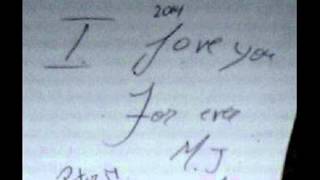 2014
I love you
For ever
M.J